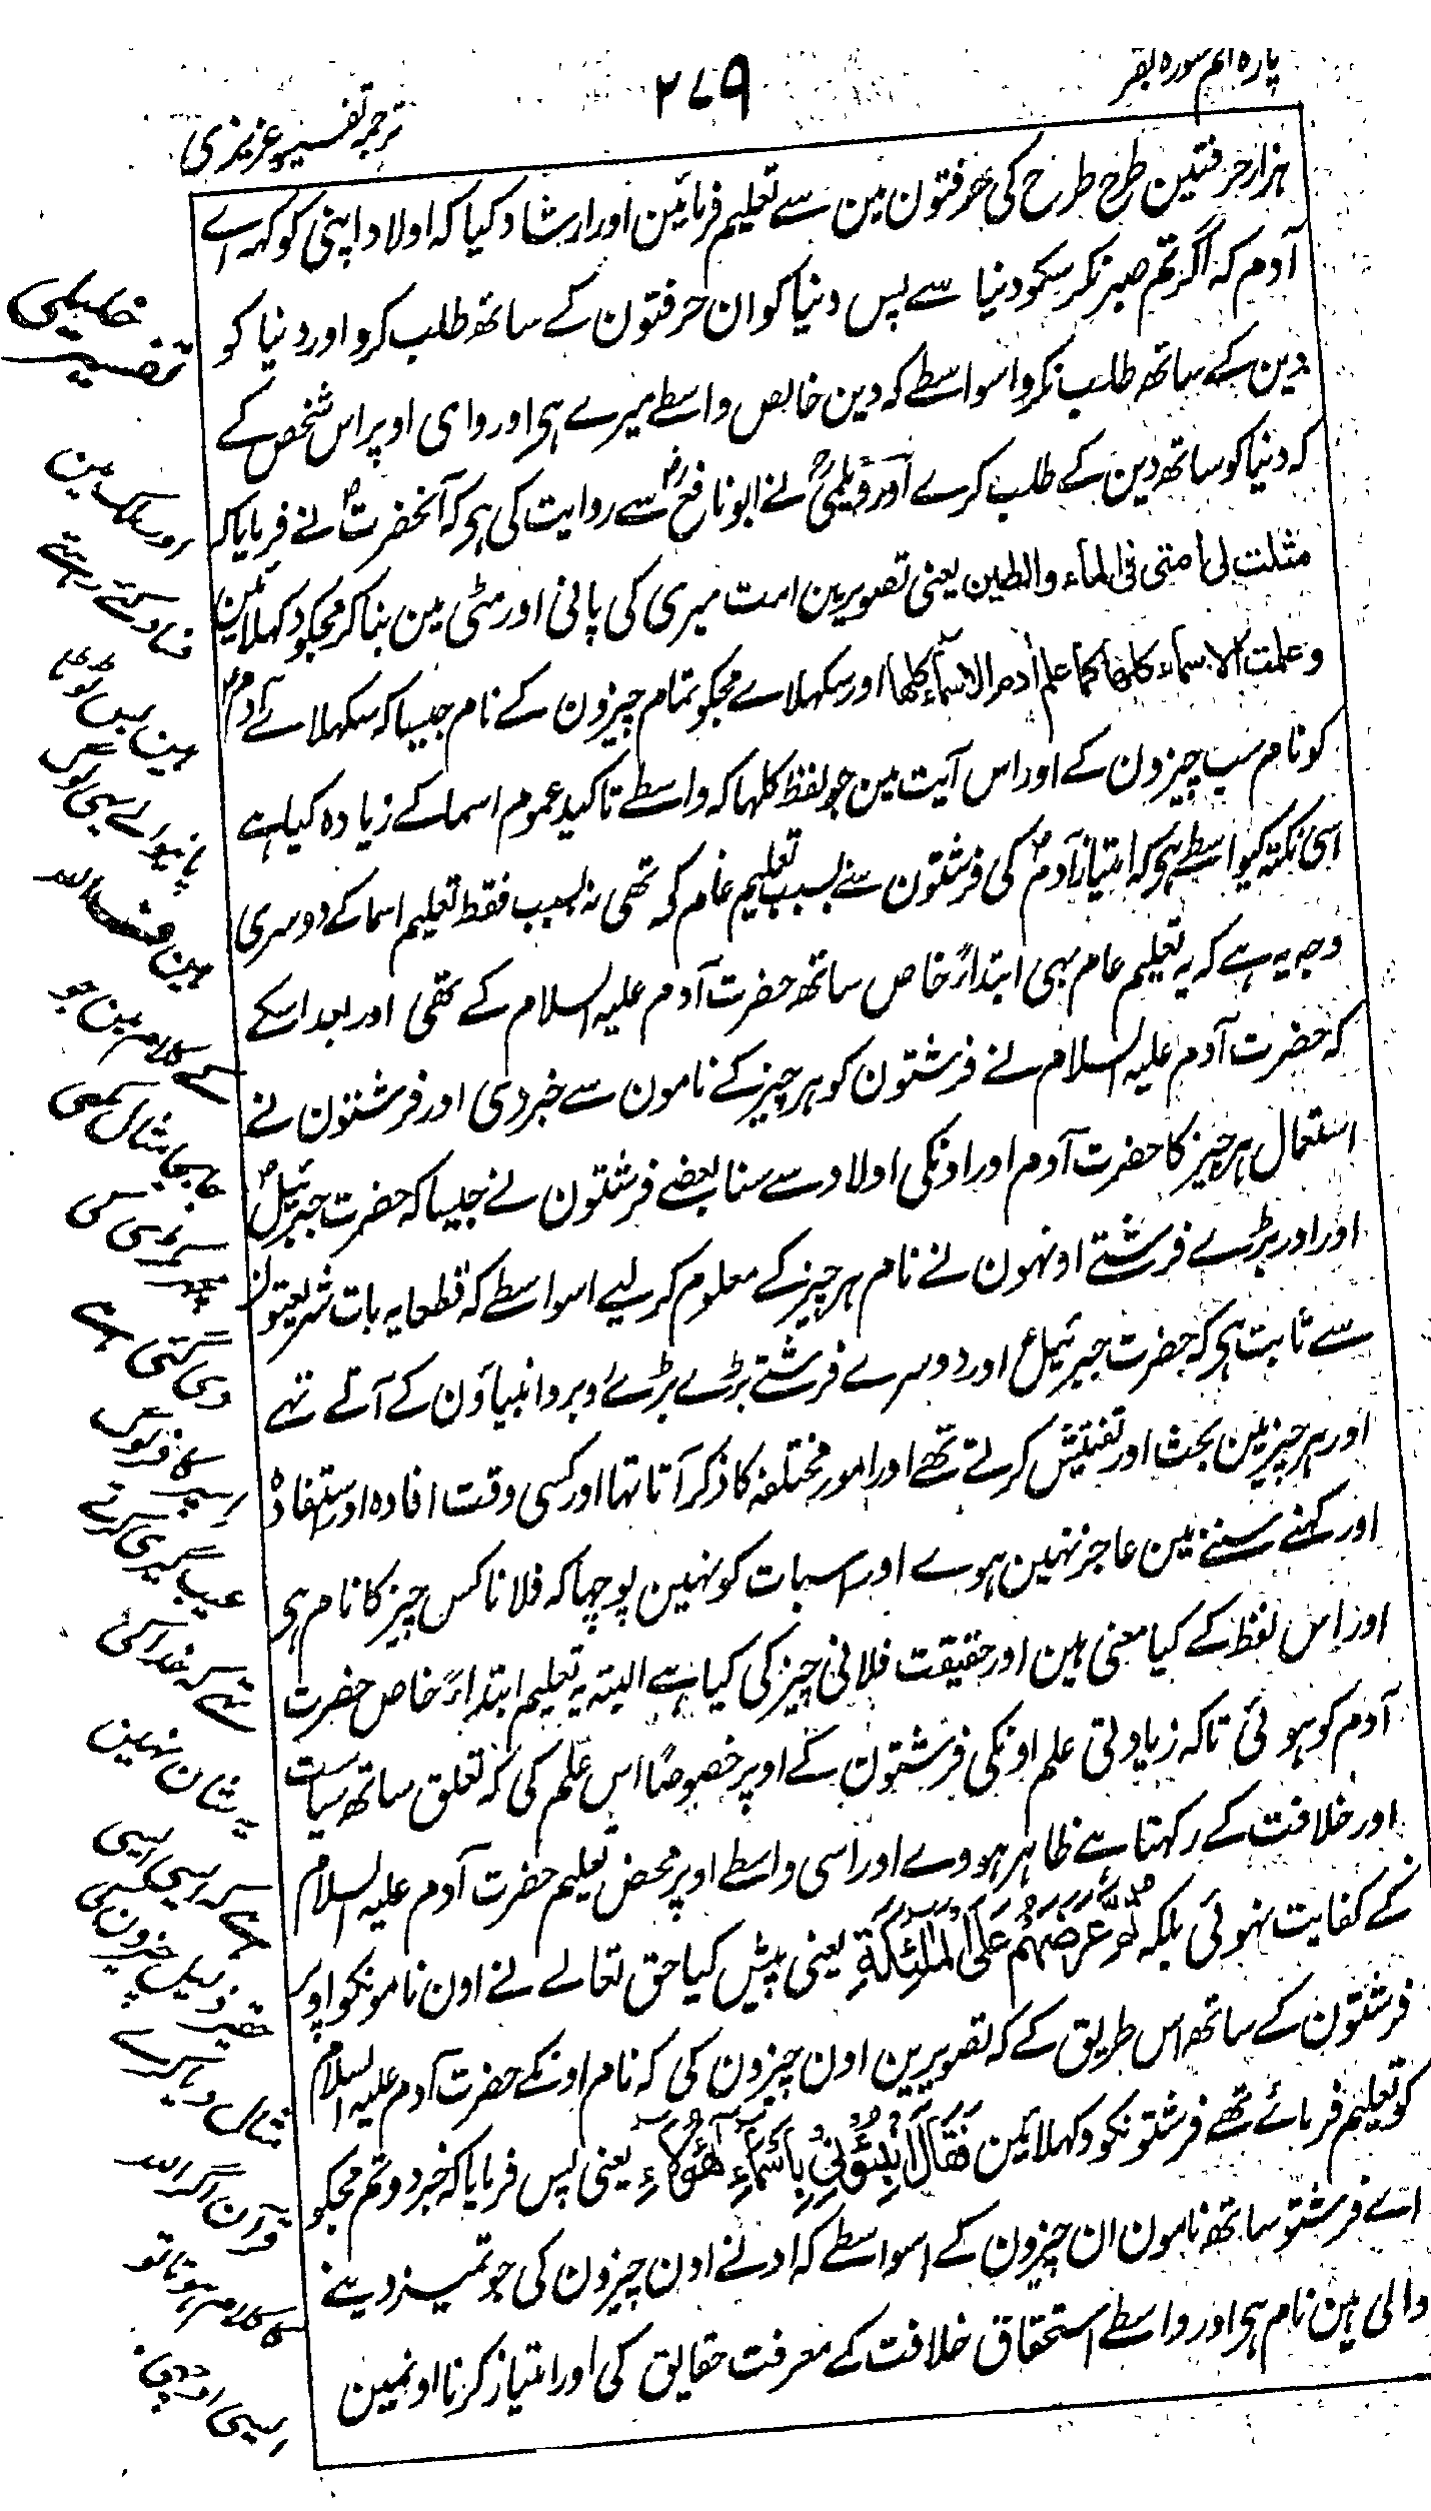 پارہ الم سورہ بقر
۲۷۹
ترجمہ تفسیر عزیزی
ہزار حرفتین طرح طرح کی حرفتون مین سے تعلیم فرمائین اور ارشاد کیا کہ اولاد اپنی کو کہہ اے
آدم کہ اگر تم صبر نکر سکو دنیا سے پس دنیا کو ان حرفتون کے ساتھ طلب کرو اور دنیا کو
دین کے ساتھ طلب نکرو اسواسطے کہ دین خالص واسطے میرے ہی اور وای اوپر اس شخص کے
کہ دنیا کو ساتھ دین کے طلب کرے اور دیلمیؒ نے ابو نافعؓ سے روایت کی ہی کہ آنحضرتؐ نے فرمایا کہ
مثلت لی امتی فی الماء والطین یعنی تصویرین امت میری کی پانی اور مٹی مین بنا کر مجکو دکہلائین
وعلمت الاسماء کلھا کما علم اٰدم الاسماء کلھا اور سکہلاے مجکو تمام چیزون کے نام جیسا کہ سکہلائے آدمؑ
کو نام سب چیزون کے اور اس آیت مین جو لفظ کلہا کہ واسطے تاکید عموم اسما کے زیادہ کیا ہے
اسی نکتہ کیواسطے ہی کہ امتیاز آدمؑ کی فرشتون سے بسبب تعلیم عام کہ تھی نہ بسبب فقط تعلیم اسما کے دوسری
وجہ یہ ہے کہ یہ تعلیم عام بہی ابتداءً خاص ساتھ حضرت آدم علیہ السلام کے تھی اور بعد اسکے
کہ حضرت آدم علیہ السلام نے فرشتون کو ہر چیز کے نامون سے خبر دی اور فرشتون نے
استعمال ہر چیز کا حضرت آدم اور اونکی اولاد سے سنا بعضے فرشتون نے جیسا کہ حضرت جبرئیلؑ
اور اور بڑے فرشتے اونہون نے نام ہر چیز کے معلوم کر لیے اسواسطے کہ قطعا یہ بات شریعتون
سے ثابت ہی کہ حضرت جبرئیلؑ اور دوسرے فرشتے بڑے بڑے روبرو انبیاؤن کے آتے تہے
اور ہر چیز مین بحث اور تفتیش کرتے تھے اور امور مختلفہ کا ذکر آتا تہا اور کسی وقت افادہ اور استفادہ
اور کہنے سننے مین عاجز نہین ہوے اور اسبات کو نہین پوچہا کہ فلانا کس چیز کا نام ہی
اور اس لفظ کے کیا معنی ہین اور حقیقت فلانی چیز کی کیا ہے البتہ یہ تعلیم ابتداءً خاص حضرت
آدم کو ہوئی تاکہ زیادتی علم اونکی فرشتون کے اوپر خصوصًا اس علم کی کہ تعلق ساتھ سیاست
اور خلافت کے رکہتا ہے ظاہر ہووے اور اسی واسطے اوپر محض تعلیم حضرت آدم علیہ السلام
کے کفایت نہوئی بلکہ ثُمَّ عَرَضَهُمْ عَلَى الْمَلٰٓئِكَةِ یعنی پیش کیا حق تعالے نے اون نامونکو اوپر
فرشتون کے ساتھ اس طریق کے کہ تصویرین اون چیزون کی کہ نام اونکے حضرت آدم علیہ السلام
کو تعلیم فرمائے تھے فرشتونکو دکہلائین فَقَالَ اَنْۢبِـُٔوْنِیْ بِاَسْمَآءِ هٰٓؤُلَآءِ یعنی پس فرمایا کہ خبر دو تم مجکو
اے فرشتو ساتھ نامون ان چیزون کے اسواسطے کہ ادنے اون چیزون کی جو تمیز دینے
والی ہین نام ہی اور واسطے استحقاق خلافت کے معرفت حقایق کی اور امتیاز کرنا اونمین
تفسیر
خلیلی
مین
رہتے
ہین
ہین
مین جو
دی گئی ہے
عیب گیری کرتے
تہے کہ خدا کی
یہ شان نہین
حقیر ذلیل چیزون کی
مثال دیا کرے
قرآن اگر اللہ
کا کلام ہوتا تو